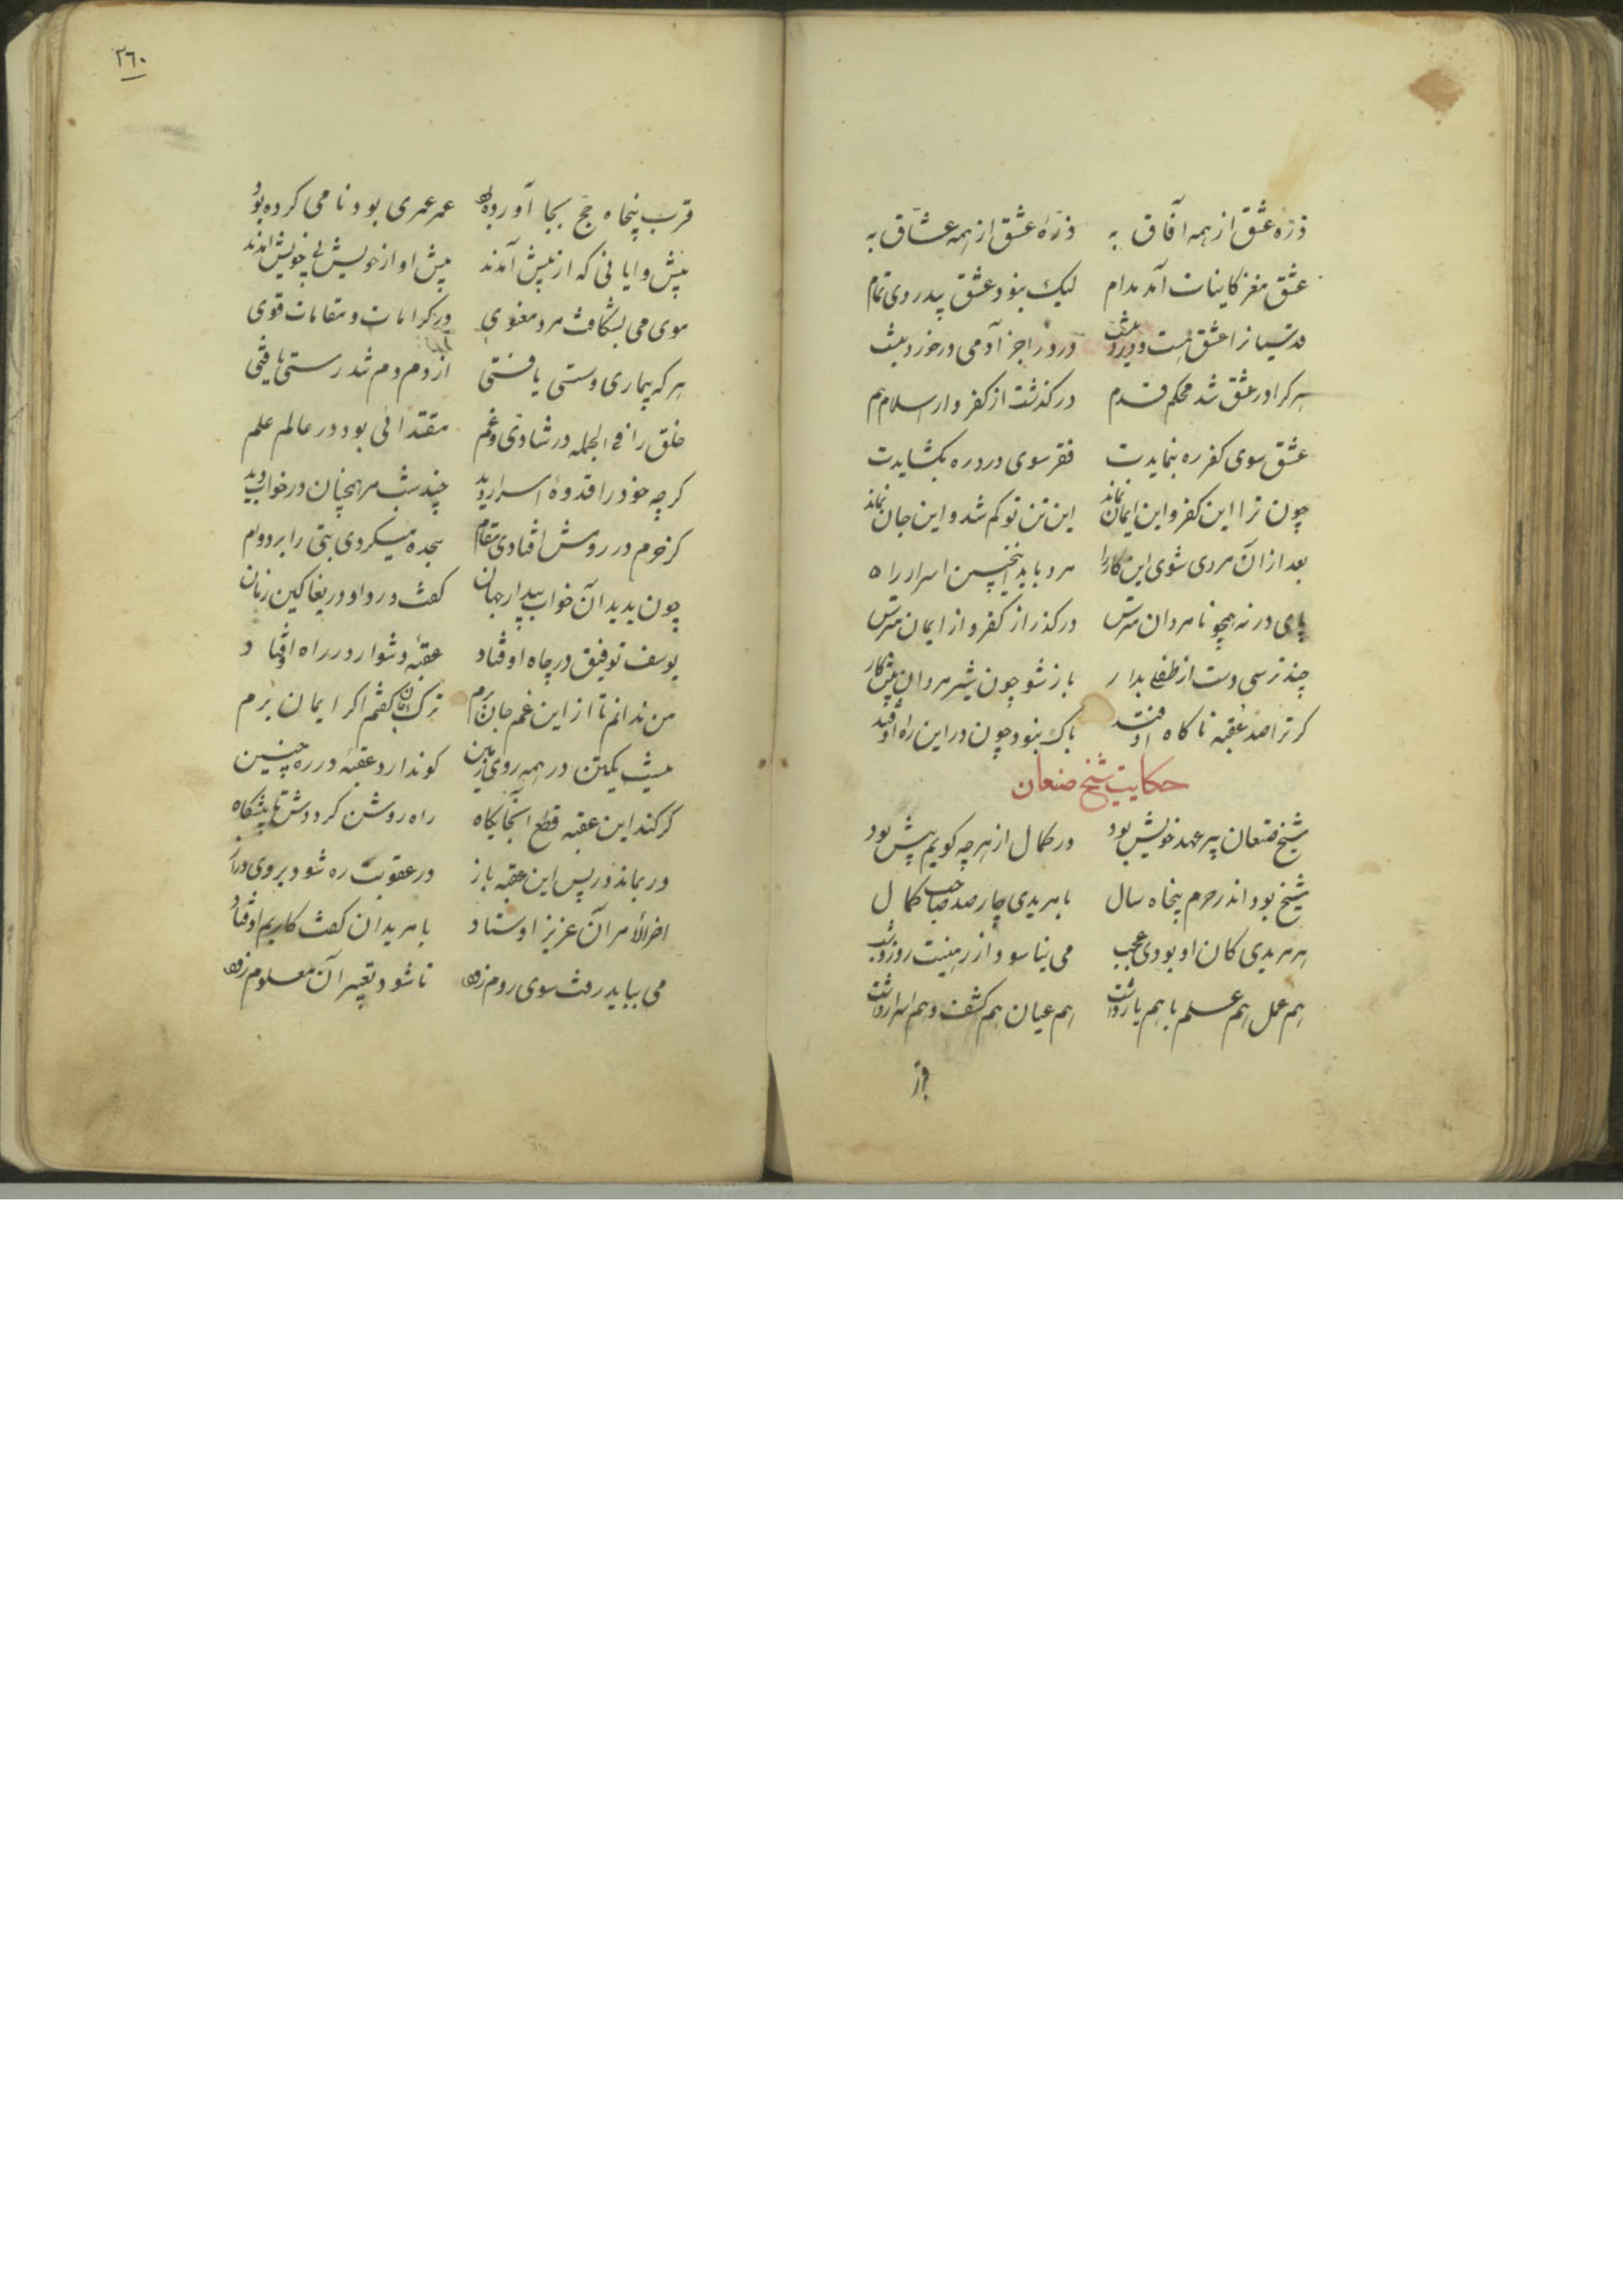 ذرّه عشق از همه آفاق به ذرّهٔ عشق از همه عشّاق به
عشق مغز کاینات آمد مدام لیک نبود عشق بیدردی تمام
قدسیانرا عشق هست و درد نیست درد را جز آدمی درخورد نیست
هر کرا در عشق شد محکم قدم در کذشت از کفر و از اسلام هم
عشق سوی کفر ره بنمایدت فقر سوی درد ره بکشایدت
چون ترا این کفر و این ایمان نماند این تن تو کم شد و این جان نماند
بعد از آن مردی شوی این کار را مرد باید اینچنین اسرار را
پای در نه همچو نامردان مترس در کذر از کفر و از ایمان مترس
چند ترسی دست از طفلی بدار باز شو چون شیر مردان پیش کار
کر ترا صد عقبه ناکاه اوفتد باک نبود چون در این راه اوفتد
حکایت شیخ صنعان
شیخ صنعان پیر عهد خویش بود در کمال از هرچه کویم بیش بود
شیخ بود اندر حرم پنجاه سال با مریدی چارصد صاحب کمال
هر مریدی کان او بودی عجب می نیاسود از ریاضت روز و شب
هم عمل هم علم با هم یار داشت هم عیان هم کشف و هم اسرار داشت
قرب
٢٦٠
قرب پنجاه حج بجا آورده بود عمر عمری بود تا می کرده بود
پیشوایانی که از پیش آمدند پیش او از خویش بی خویش آمدند
موی می بشکافت مرد معنوی در کرامات و مقامات قوی
هر که بیماری و سستی یافتی از دم او تندرستی یافتی
خلق را فی الجمله در شادی و غم مقتدائی بود در عالم علم
کرچه خود را قدوهٔ اسرار دید چند شب مر همچنان در خواب دید
کز حرم در رومش افتادی مقام سجده میکردی بتی را بر دوام
چون بدید آن خواب بیدار جهان کفت دردا و دریغا کین زمان
یوسف توفیق در چاه اوفتاد عقبهٔ دشوار در راه اوفتاد
من ندانم تا از این غم جان برم ترک جان کفتم اکر ایمان برم
نیست یکتن در همه روی زمین کو ندارد عقبهٔ در ره چنین
کر کند این عقبه قطع آنجایکاه راه روشن کرددش تا پیشکاه
ور بماند در پس این عقبه باز در عقوبت ره شود بر وی دراز
اخرالأمر آن عزیز اوستاد با مریدان کفت کاریم اوفتاد
می بباید رفت سوی روم زود تا شود تعبیر آن معلوم زود